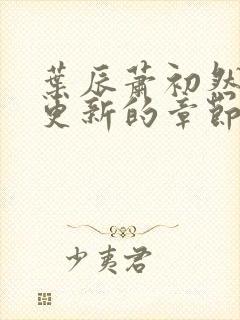 葉辰蕭初然
更新的章節
少夷君